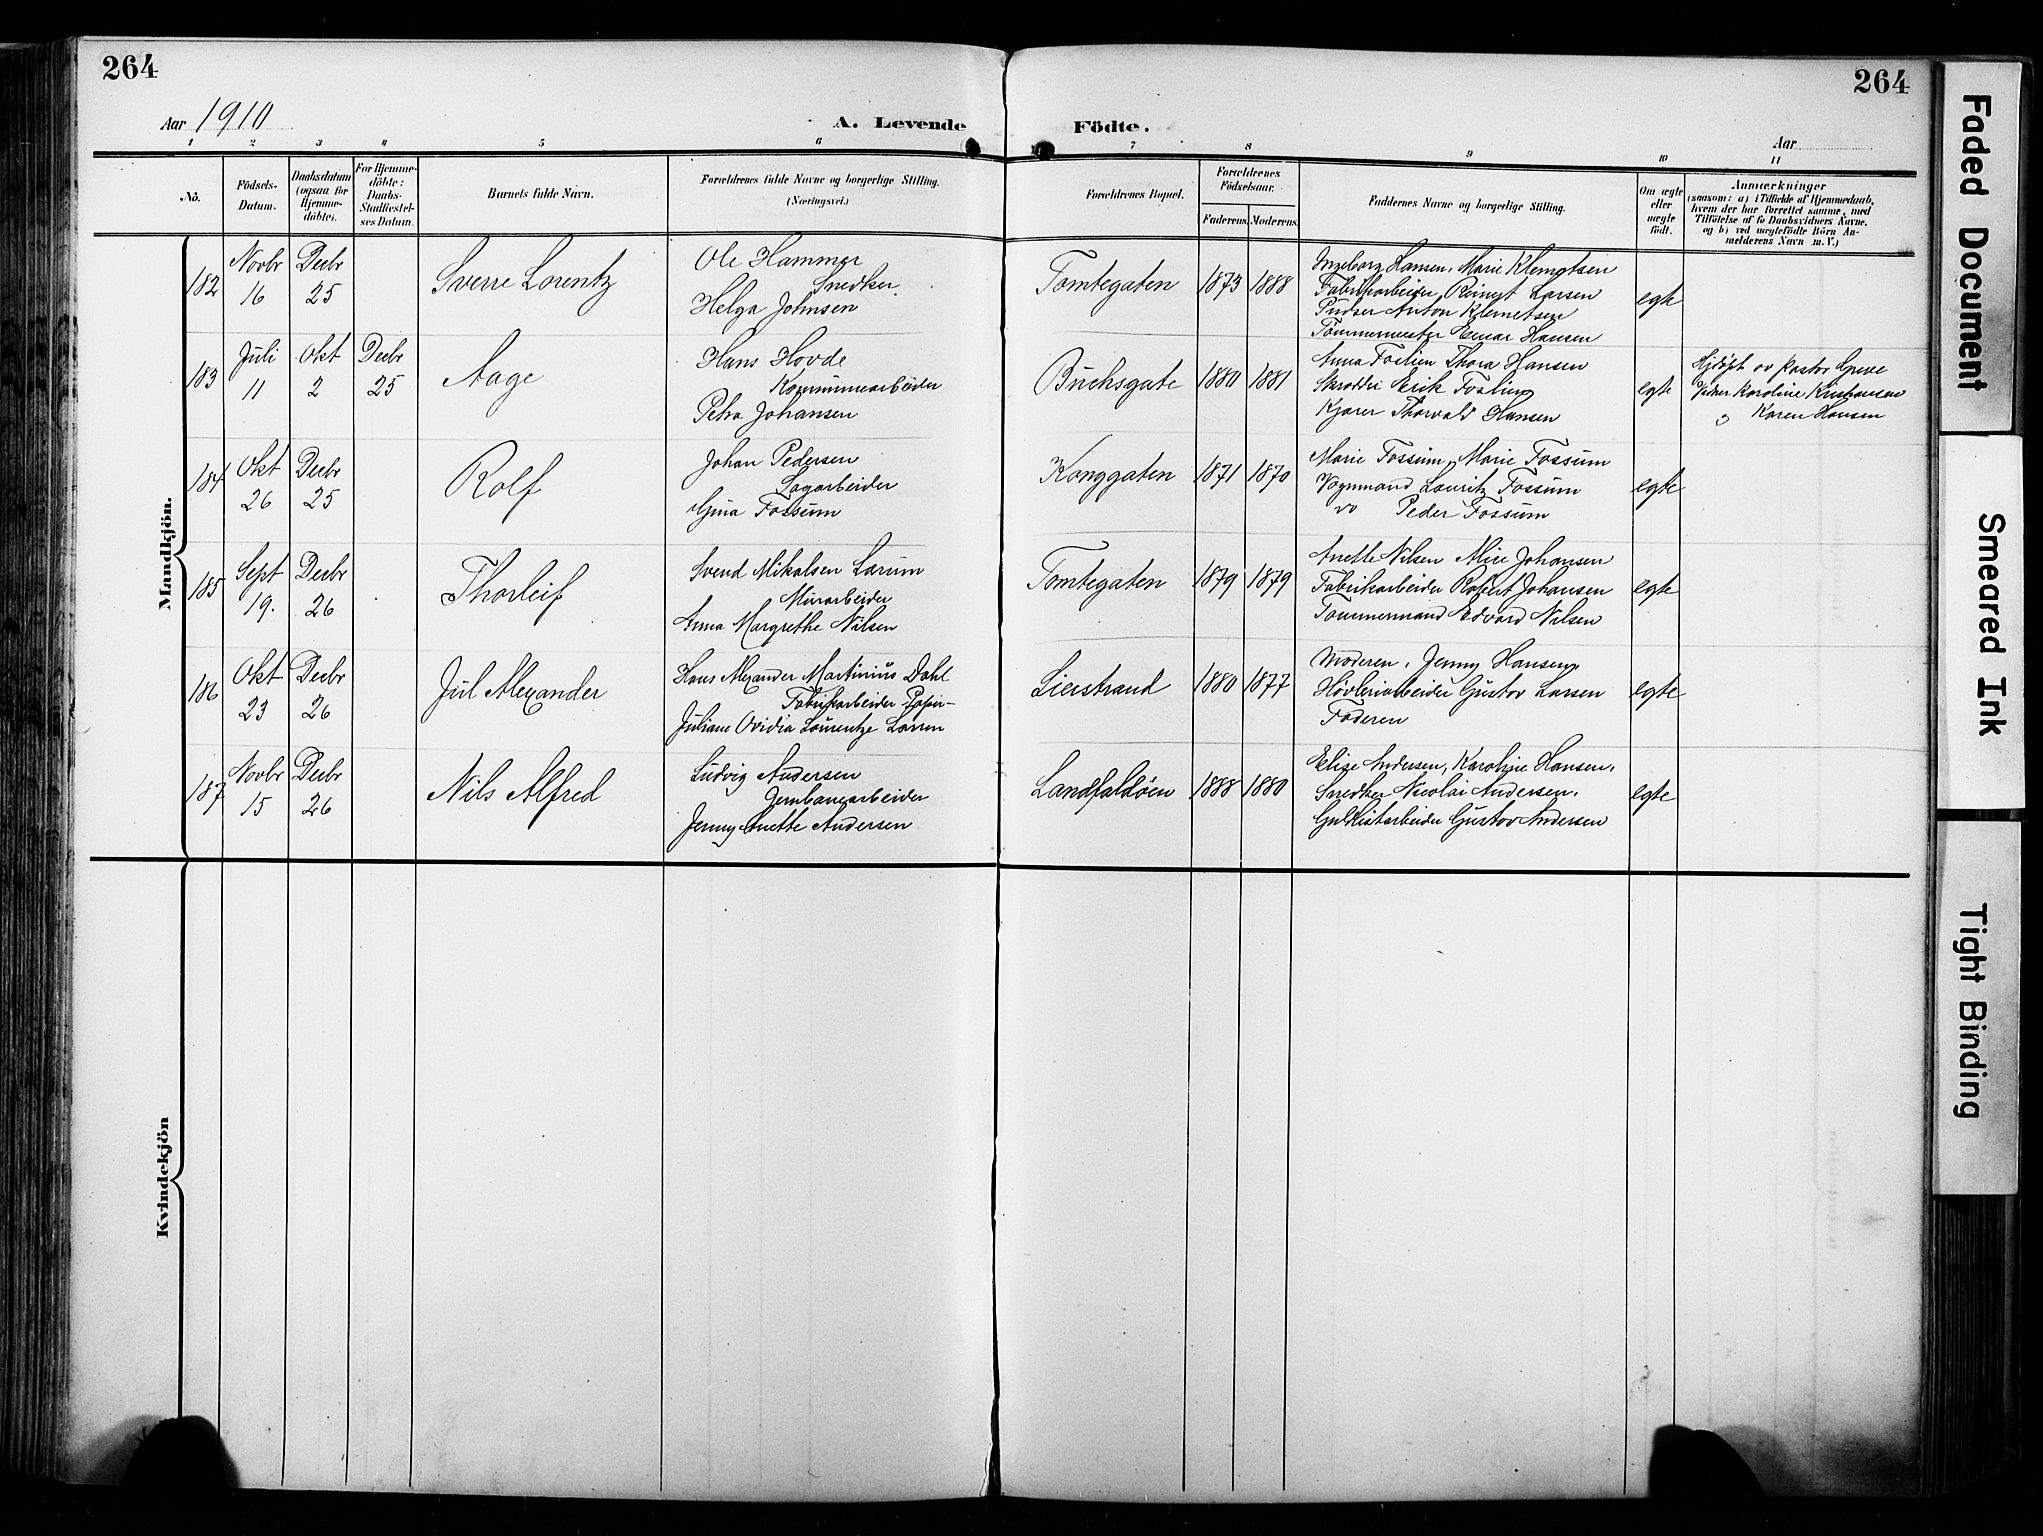 264
264
Aar 1910
A. Levende Födte.
Aar
1 2 3 4 5 6 7 8 9 10 11
No.
Födsels-Datum.
Daabsdatum (ogsaa for Hjemme-döbte).
For Hjemme-döbte: Daabs-Stadfæstel-ses Datum.
Barnets fulde Navn.
Forældrenes fulde Navne og borgerlige Stilling. (Næringsvei.)
Forældrenes Bopæl.
Forældrenes Födselsaar.
Faderens. Moderens.
Faddernes Navne og borgerlige Stilling.
Om ægte eller uægte födt.
Anmærkninger
(saasom: a) i Tilfælde af Hjemmedaab,
hvem der har forrettet samme, med
Tilföielse af to Daabsvidners Navne.
og b) ved uægtefödte Börn An-
melderens Navn m. V.)
Mandkjön.
182 Novbr 16 Decbr 25 Sverre Lorentz
Ole Hammer
Snedker
Helga Johnsen
Tomtegaten 1873 1888
Ingeborg Hansen, Marie Klemetsen
Fabrikarbeider Larsen
Pudser Anton Klemetsen
Tømmermester Einar Hansen
egte
183 Juli 11 Okt 2 Decbr 25 Aage
Hans Hovde
Kommunearbeider
Petra Johansen
Buchsgate 1880 1881
Anna Fosling Thora Hansen
Skrædder Erik Fosling
Kjører Thorvald Hansen
egte
Hjdøpt av Pastor Greve
Vidner Karoline Kristiansen
Karen Hansen
184 Okt 26 Decbr 25 Rolf
Johan Pedersen
Sagarbeider
Gina Fossum
Konggaten 1871 1870
Marie Fossum, Marie Fossum
Vognmand Lauritz Fossum
do Peder Fossum
egte
185 Sept 19. Decbr 26 Thorleif
Svend Mikalsen Larum
Murarbeider
Anna Margrethe Nilsen
Tomtegaten 1879 1879
Anette Nilsen Alice Johansen
Fabrikarbeider Robert Johansen
Tømmermand Edvard Nilsen
egte
186 Okt 23 Decbr 26 Jul Alexander
Hans Alexander Martinius Dahl
Fabrikarbeider Papir-
Juliane Ovidia Laurentze
Lierstrand 1880 1877
Moderen, Jenny Hansen
Høvleriarbeider Gustav Larsen
Faderen
egte
187 Novbr 15 Decbr 26 Nils Alfred
Ludvig Andersen
Jernbanearbeider
Jenny Anette Andersen
Landfaldøen 1888 1880
Elise Andersen, Karoline Hansen,
Snedker Nicolai Andersen,
Gullistarbeider Gustav Andersen
egte
Kvindekjön
Faded Document
Smeared Ink
Tight Binding